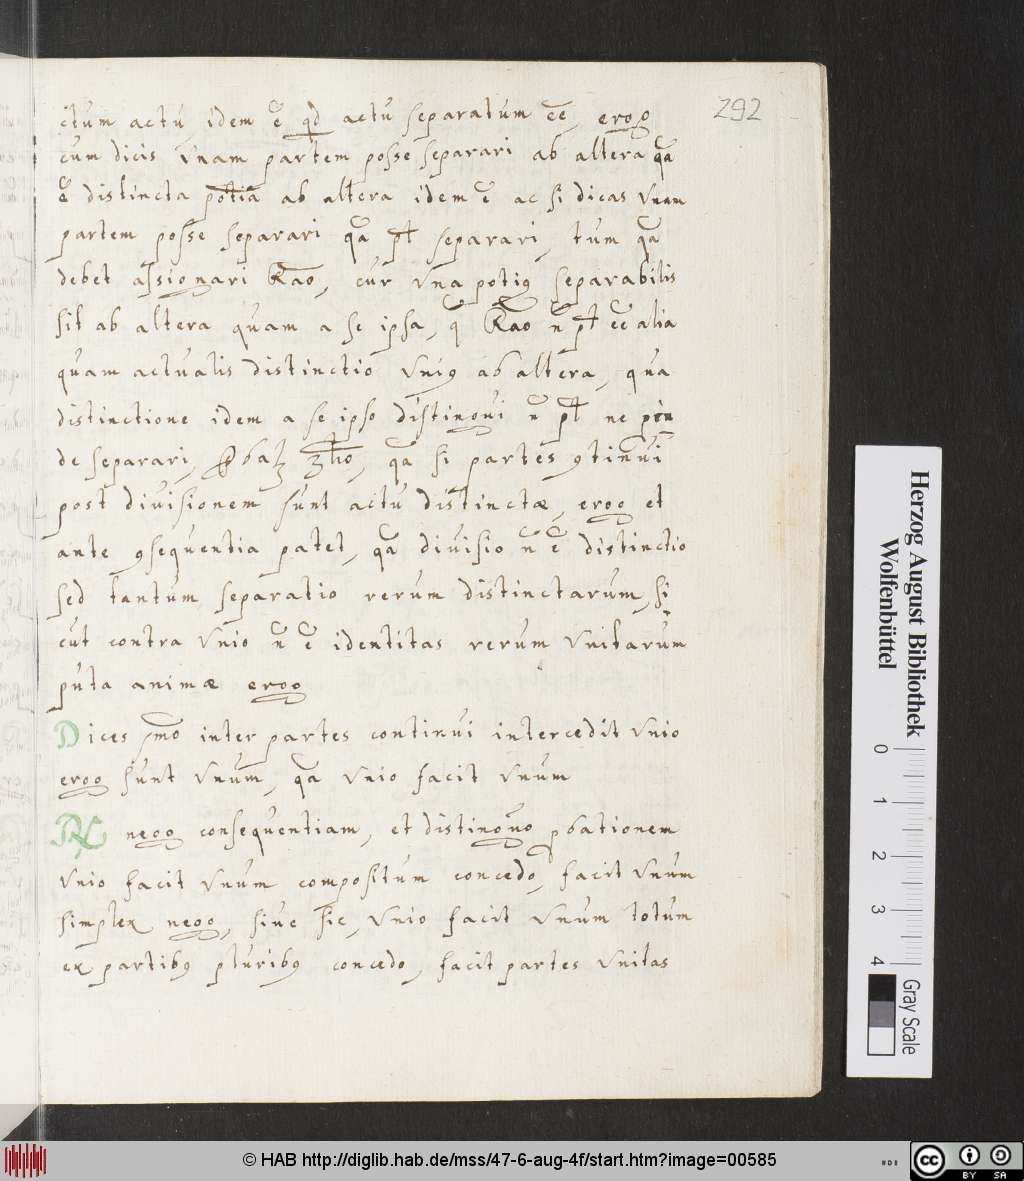 292
ctum actu, idem ē qd actu separatum eē, ergo
cum dicis Vnam partem posse separari ab altera qa
ē distincta potiā ab altera idem ē ac si dicas Vnam
partem posse separari qa pt separari, tum qa
debet assignari Rao, cur Vna potiꝯ separabilis
sit ab altera quam a se ipsa, q Rao ñ pt eē alia
quam actualis distinctio Vniꝯ ab altera, qua
distinctione idem a se ipso distingui ñ pt ne
de separari, qa si partes ꝯtinui
post diuisionem sunt actu distinctæ, ergo et
ante ꝯsequentia patet, qa diuisio ñ ē distinctio
sed tantum separatio rerum distinctarum, si
cut contra Vnio ñ ē identitas rerum Vnitarum
puta animæ ergo
Dices inter partes continui intercedit Vnio
ergo sunt Vnum, qa Vnio facit Vnum
nego consequentiam, et distinguo ꝓbationem
Vnio facit Vnum compositum concedo, facit Vnum
simplex nego, siue sic, Vnio facit Vnum totum
ex partibꝯ pluribꝯ concedo, facit partes Vnitas
Herzog August Bibliothek
Wolfenbüttel
0 1 2 3 4
Gray Scale
© HAB http://diglib.hab.de/mss/47-6-aug-4f/start.htm?image=00585
cc BY SA